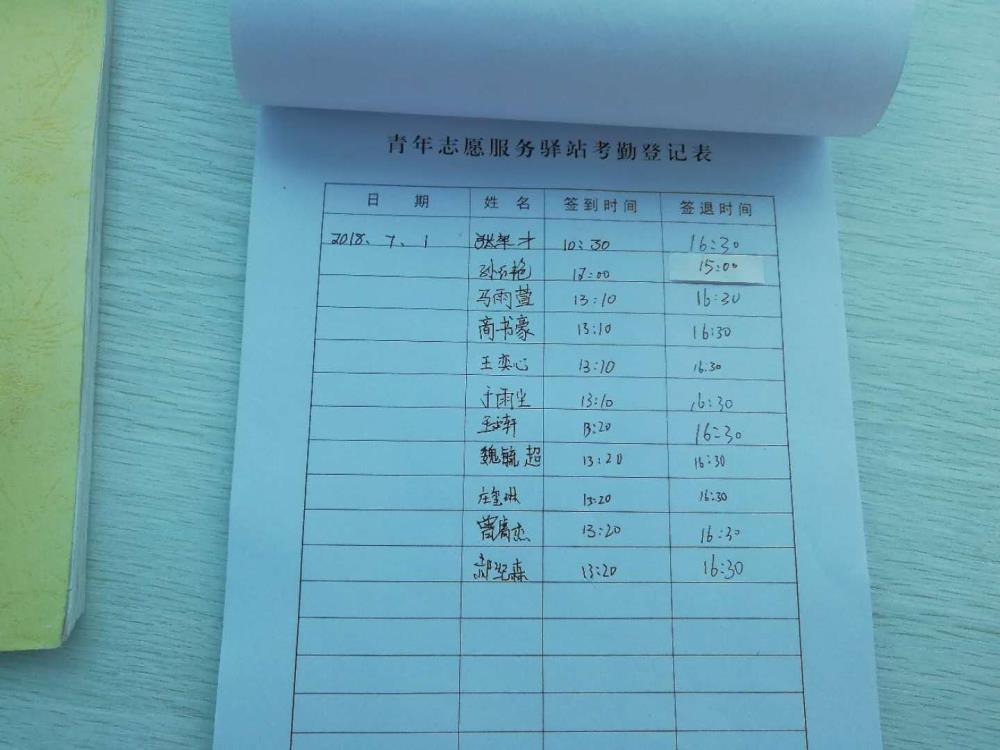 青年志愿服务驿站考勤登记表
日 期 姓 名 签到时间 签退时间
2018、7、1 张 才 10:30 16:30
孙 艳 :00 15:00
马雨萱 13:10 16:30
商书豪 13:10 16:30
王奕心 13:10 16:30
于雨 13:10 16:30
轩 13:20 16:30
魏毓超 13:20 16:30
庄玺琳 13:20 16:30
曾 杰 13:20 16:30
森 13:20 16:30